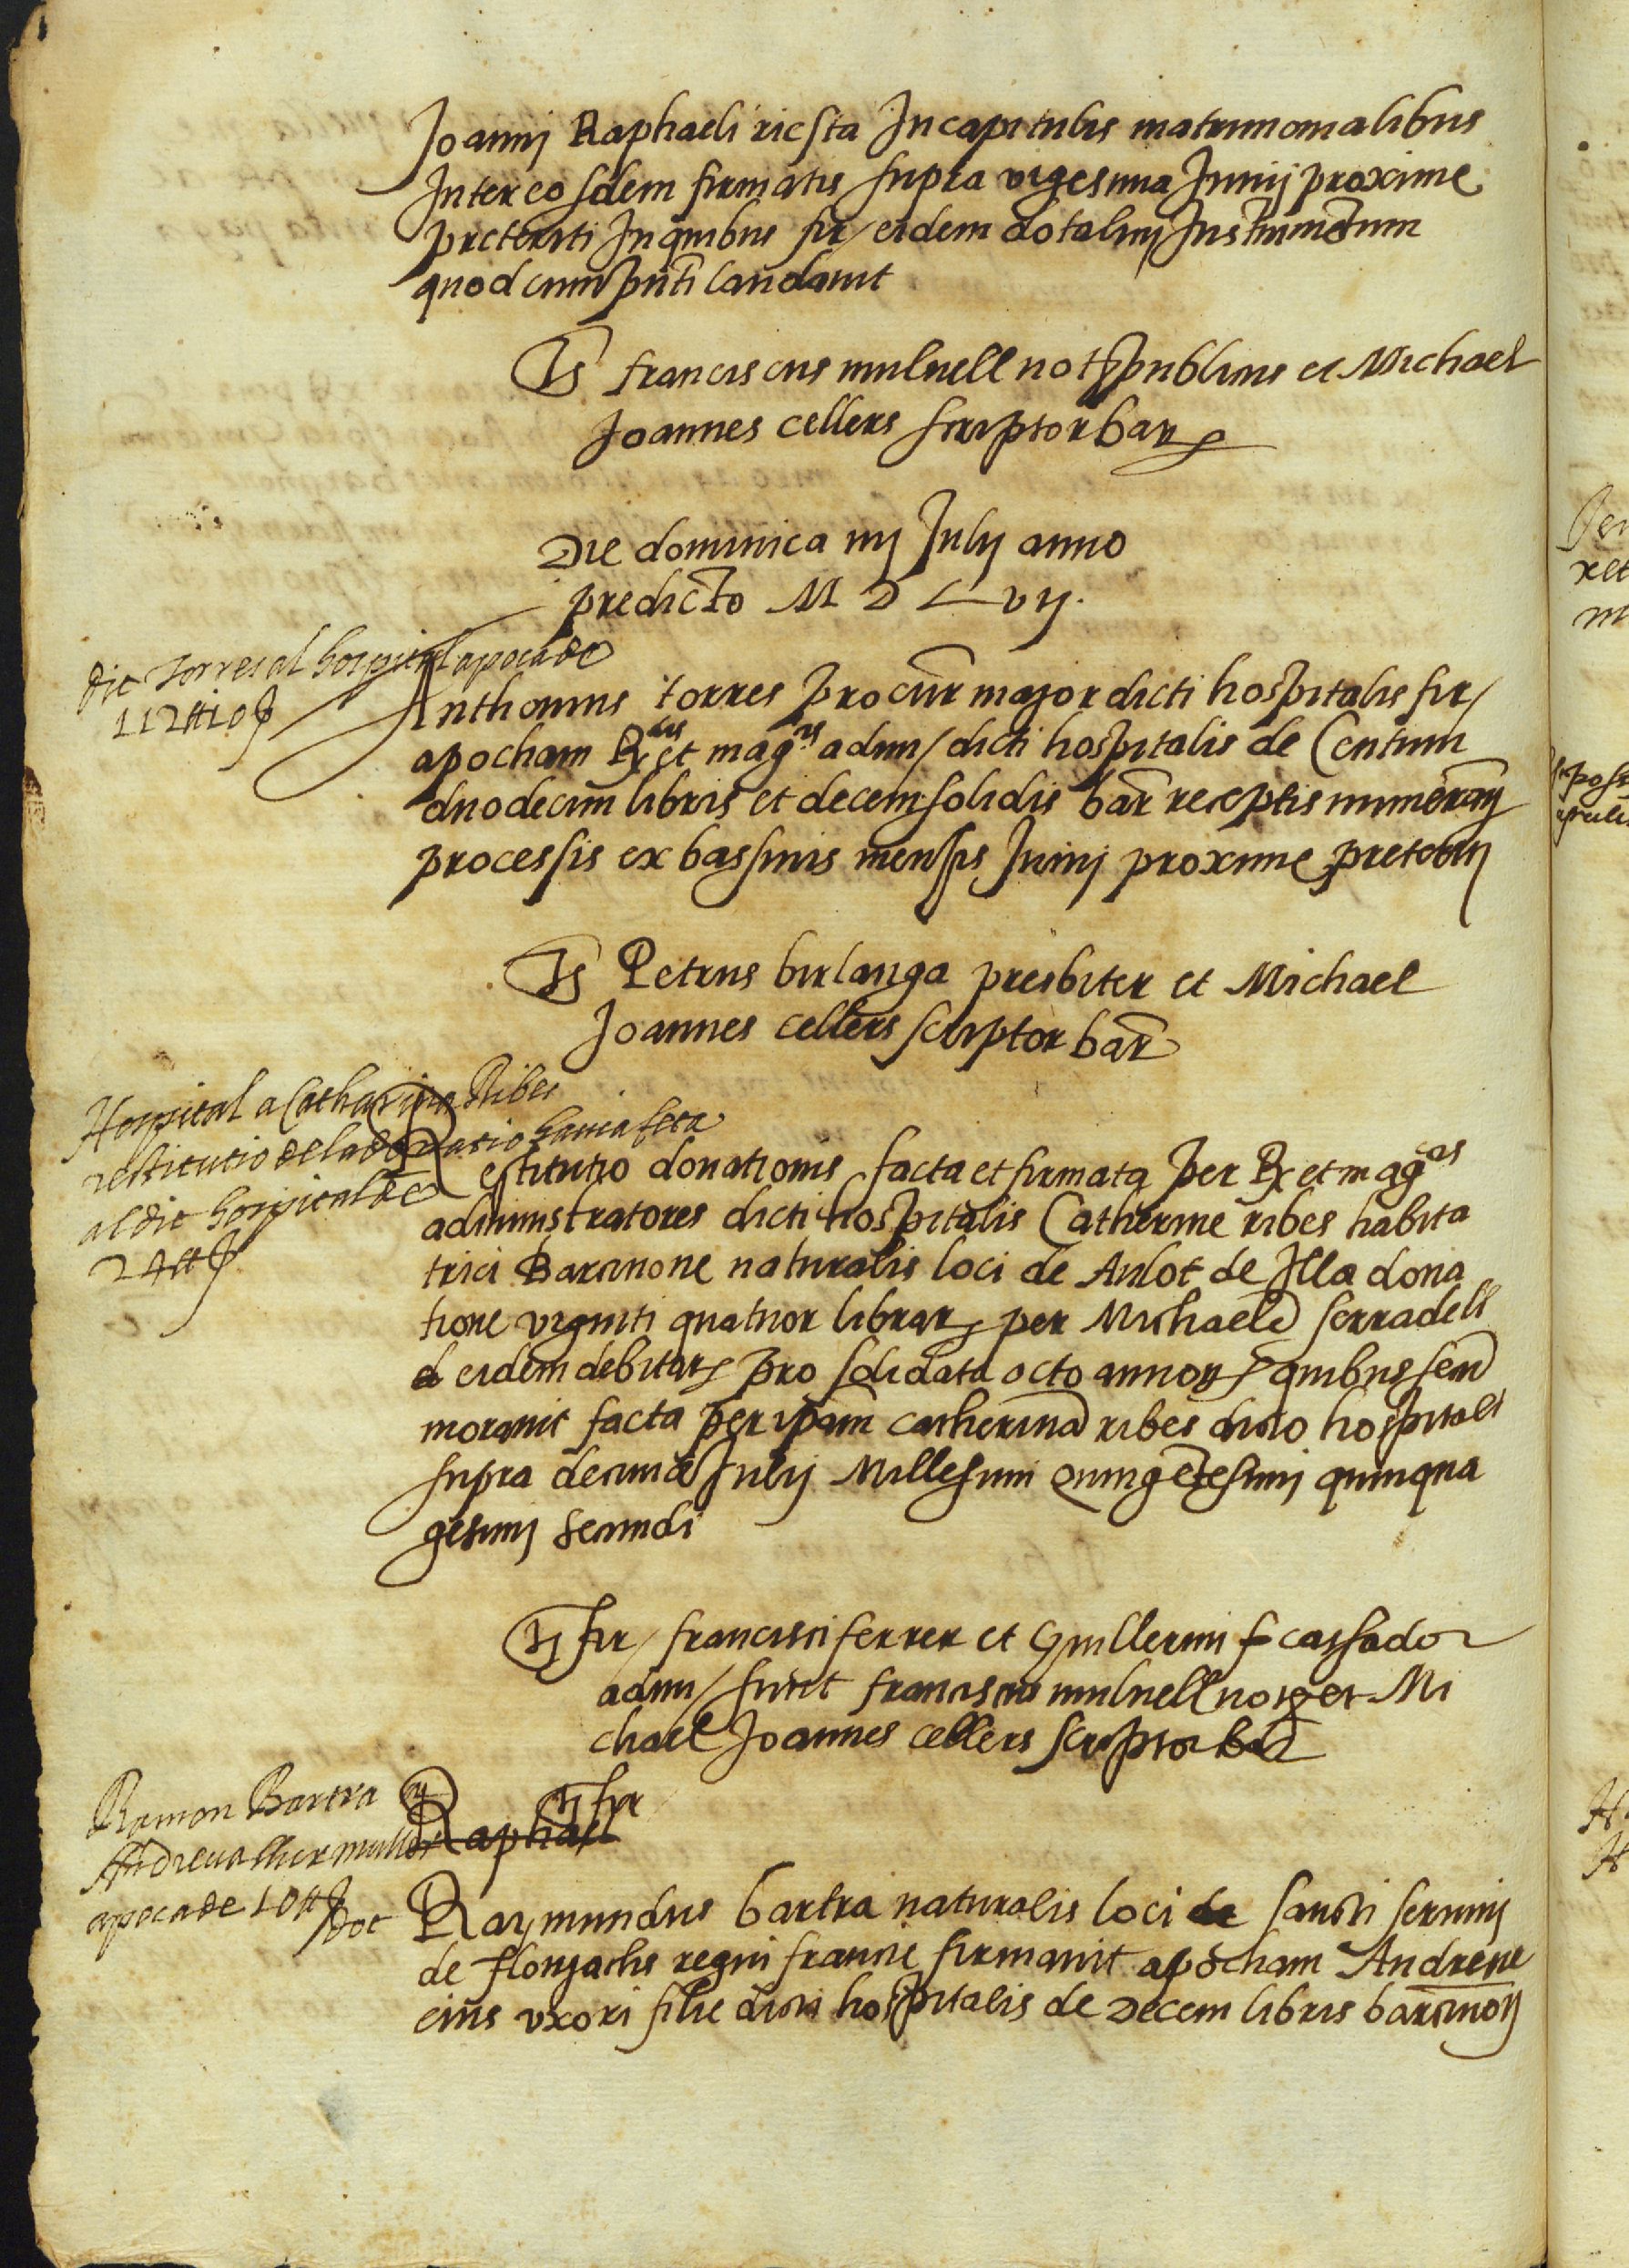 Joannj Raphaeli riesta In capitulis matrimonialibus
Inter eosdem firmatis supra vigesima Junij proxime
preteriti In quibus fir/ eidem dotaliuj Instrumētum
quod cum pñti laudavit
Ts franciscus mulnell not publicus et Michael
Joannes cellers scriptor bar
Die dominica iiij July anno
predicto M D L vij.
dit torres al hospital apoca de
112 ₶ 10 ſ
Anthonius torres procur̄ major dicti hospitalis fir/
apocham R dis et mag cis adm/ dicti hospitalis de Centum
duodecim libris et decem solidis bar̄ receptis numerān
processis ex bassinis mensis Junij proxime preteriti
Ts Petrus birlanga presbiter et Michael
Joannes cellers scriptor bar̄
Hospital a Catharina Ribes
restitucio de la donacio havia feta
al dit hospital de
24 ₶ ſ
Restitutio donationis facta et firmata per R et mag cos
administratores dicti hospitalis Catherine ribes habita
trici Barcinone naturalis loci de Aulot de Illa dona
tione viginti quatuor librar per Michaelē serradell
eidem debitar pro solidata octo annor quibus secū
moravit facta per ipam catherinā ribes dicto hospitali
supra decima Julij Millesimi quingētesimj quinqua
gesimj secundi
Ts fir/ francisci ferrer et Guillermi f cassador
adm/ sunt franciscus mulnell not et Mi
chael Joannes cellers scriptor bar̄
Ts fir
Raphael
Ramon Bartra a
Andreua muller
apoca de 10 ₶ ſ
dot
Raymundus bartra naturalis loci de sancti serninj
de flonjachs regni francie firmavit apocham Andreue
eius uxori filie dicti hospitalis de Decem libris barcinoñ